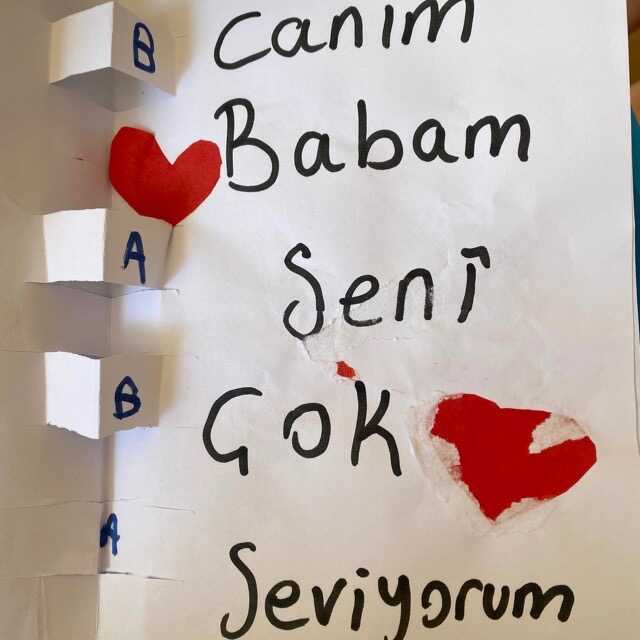 B
A
B
A
Canım
Babam
Senî
GOK
Seviyorum